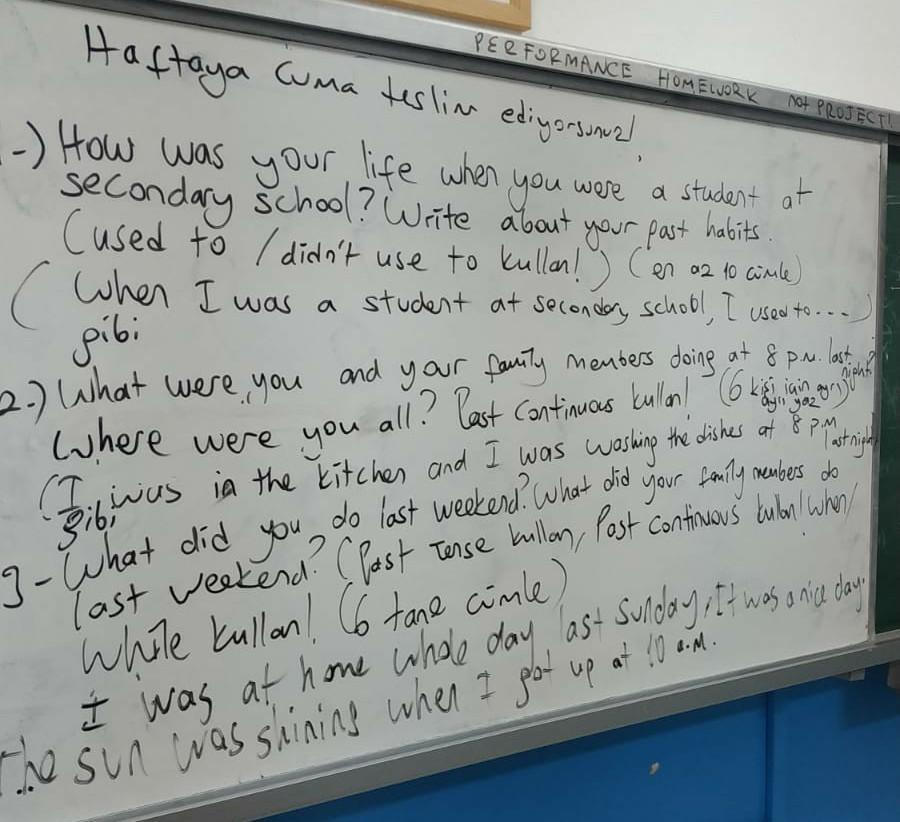 PERFORMANCE HOMEWORK not PROJECT!
Haftaya Cuma teslim ediyorsunuz!
1-) How was your life when you were a student at
secondary school? Write about your past habits.
(used to / didn't use to kullan!) (en az 10 cümle)
(When I was a student at secondary school, I used to....)
gibi
2-) What were you and your family members doing at 8 p.m. last night?
Where were you all? Past Continuous kullan! (6 kişi için ayrı ayrı yaz)
(I was in the kitchen and I was washing the dishes at 8 p.m last night
gibi
3- What did you do last weekend? What did your family members do
last weekend? (Past Tense kullan, Past continuous kullan! When/
While kullan! (6 tane cümle)
I was at home whole day last sunday, It was a nice day.
The sun was shining when I got up at 10 a.m.